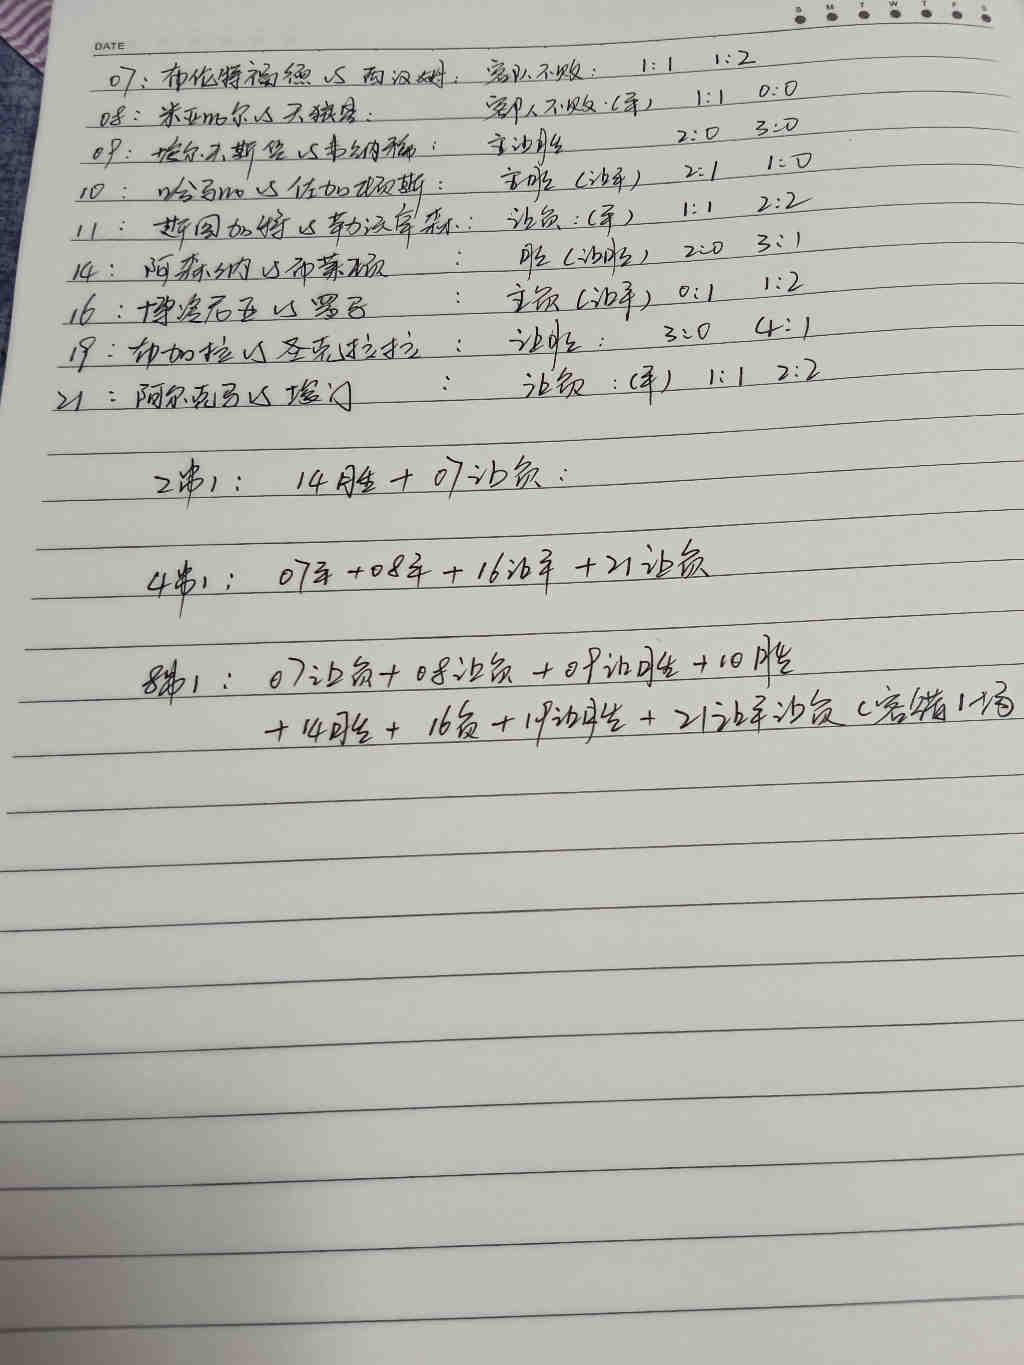 S M T W T F S
DATE
07: 布伦特福德 VS 西汉姆: 客队不败: 1:1 1:2
08: 米亚尔比 VS 天狼星: 客队不败.(平) 1:1 0:0
09: 埃尔夫斯堡 VS 韦纳穆: 主让胜 2:0 3:0
10: 哈马比 VS 佐加顿斯: 主胜 (让平) 2:1 1:0
11: 斯图加特 VS 勒沃库森: 让负:(平) 1:1 2:2
14: 阿森纳 VS 布莱顿 : 胜 (让胜) 2:0 3:1
16: 博洛尼亚 VS 罗马 : 主负 (让平) 0:1 1:2
19: 布加拉 VS 圣克拉拉 : 让胜: 3:0 4:1
21: 阿尔克马 VS 埃门 : 让负:(平) 1:1 2:2
2串1: 14胜 + 07让负:
4串1: 07平 + 08平 + 16让平 + 21让负
8串1: 07让负 + 08让负 + 09让胜 + 10胜
+ 14胜 + 16负 + 19让胜 + 21让平让负 (容错1场